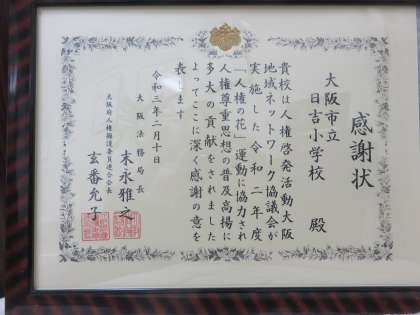 感謝状
大阪市立
日吉小学校 殿
貴校は人権啓発活動大阪
地域ネットワーク協議会が
実施した令和二年度
「人権の花」運動に協力され
人権尊重思想の普及高揚に
多大の貢献をされました
よってここに深く感謝の意を
表します
令和三年二月十日
大阪法務局長
末永雅之
大阪府人権擁護委員連合会会長
玄番允子